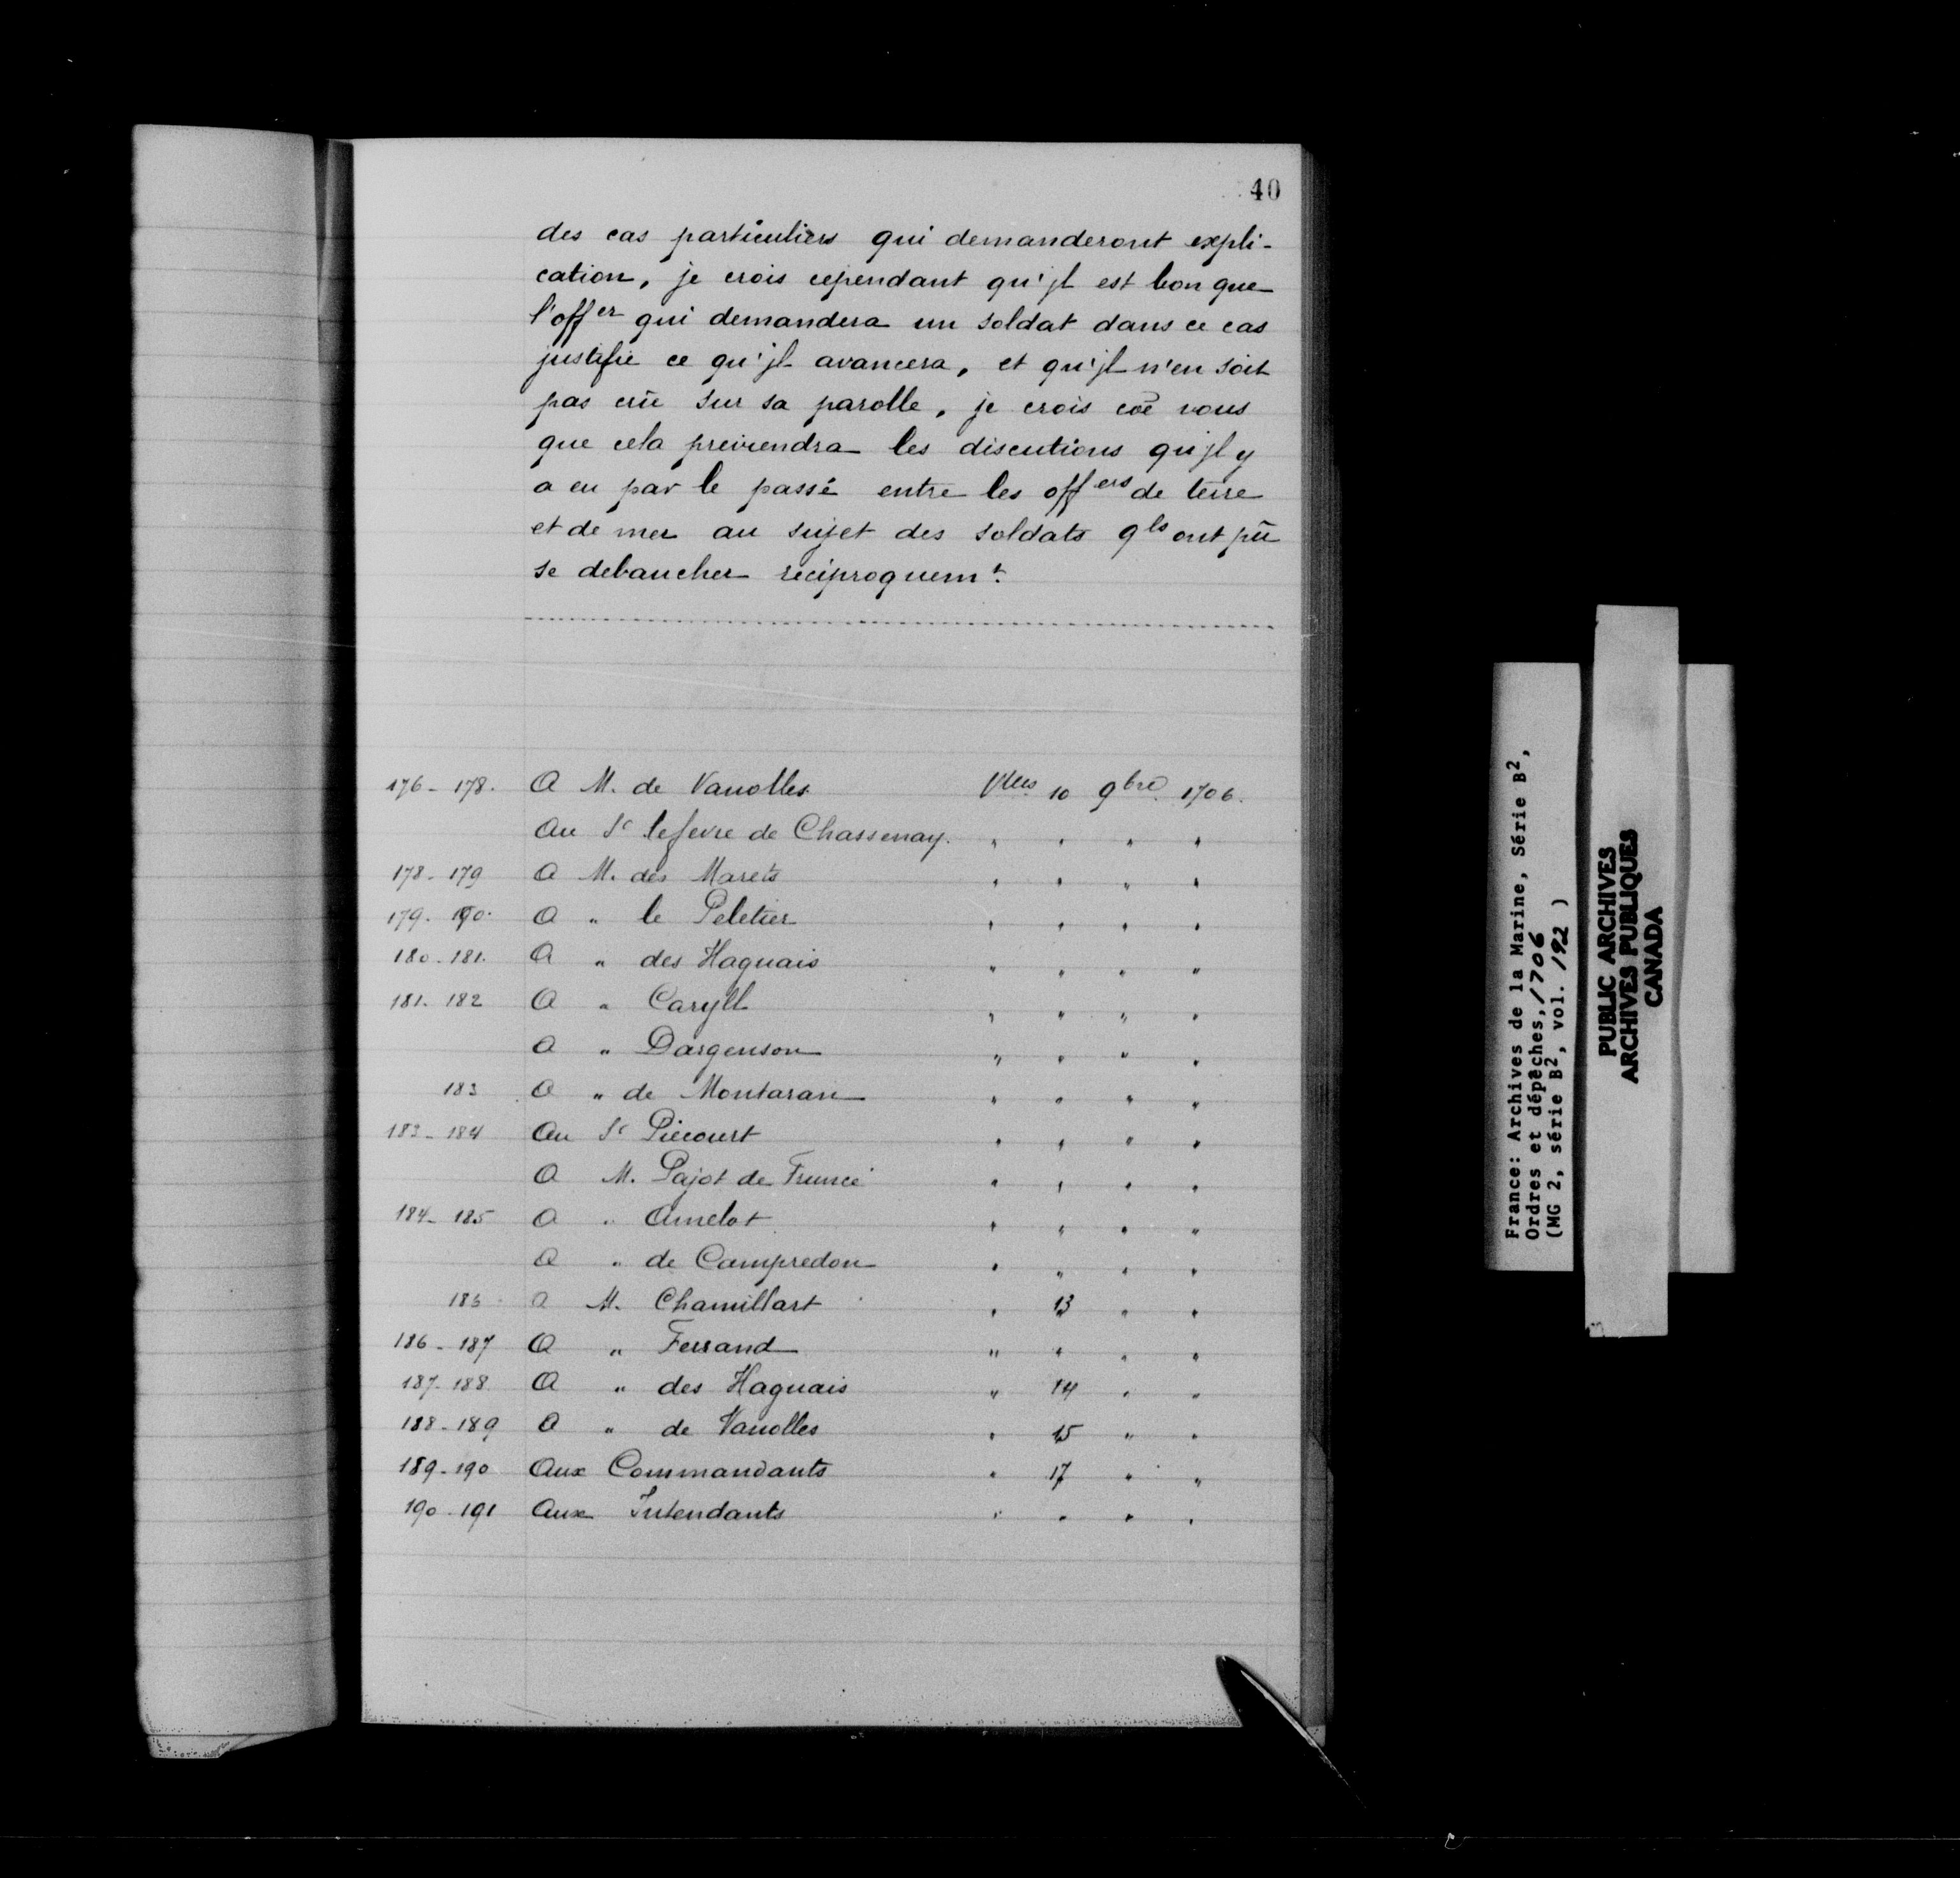 40
des cas particuliers qui demanderont expli-
cation, je crois cependant qu'jl est bon que
l'offer qui demandera un soldat dans ce cas
justifie ce qu'jl avancera, et qu'jl n'en soit
pas crû sur sa parolle, je crois cōe vous
que cela previendra les discutions qu'jl y
a eu par le passé entre les offers de terre
et de mer au sujet des soldats qls ont pû
se debaucher reciproquemt.
176 - 178. A M. de Vanolles Vlles 10 9bre 1706.
Au Sr lefevre de Chassenay. " " " "
178 - 179 A M. des Marets " " " "
179. 190. A " le Peletier " " " "
180 - 181. A " des Haguais " " " "
181. 182 A " Caryll " " " "
A " Dargenson " " " "
183 A " de Montaran " " " "
183 - 184 Au Sr Piecourt " " " "
A M. Pajot de " " " "
184 - 185 A " Amelot " " " "
A " de Campredon " " " "
186 A M. Chamillart " 13 " "
186 - 187 A " Ferrand " " " "
187 - 188 A " des Haguais " 14 " "
188 - 189 A " de Vanolles " 15 " "
189 - 190 Aux Commandants " 17 " "
190 - 191 Aux Intendants " " " "
France: Archives de la Marine, Série B2,
Ordres et dépêches, 1706
(MG 2, série B2, vol. 192 )
PUBLIC ARCHIVES
ARCHIVES PUBLIQUES
CANADA